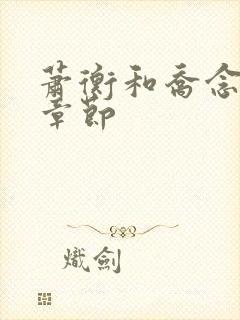 蕭衡和喬念
章節
熾劍